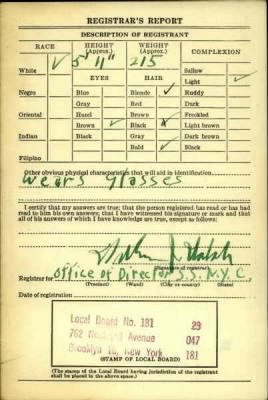 REGISTRAR'S REPORT
DESCRIPTION OF REGISTRANT
RACE HEIGHT (Approx.) WEIGHT (Approx.) COMPLEXION
White ✓ 5' 11" 215 Sallow
EYES HAIR Light ✓
Negro Blue Blonde Ruddy
Gray Red Dark
Oriental Hazel Brown Freckled
Brown ✓ Black Light brown
Indian Black Gray Dark brown
Bald ✓ Black
Filipino
Other obvious physical characteristics that will aid in identification
Wears Glasses
I certify that my answers are true; that the person registered has read or has had
read to him his own answers; that I have witnessed his signature or mark and that
all of his answers of which I have knowledge are true, except as follows:
(Signature of registrar)
Registrar for Office of Director S.S. N.Y.C.
(Precinct) (Ward) (City or county) (State)
Date of registration
Local Board No. 181 29
Avenue 047
Brooklyn New York 181
(STAMP OF LOCAL BOARD)
(The stamp of the Local Board having jurisdiction of the registrant
shall be placed in the above space.)